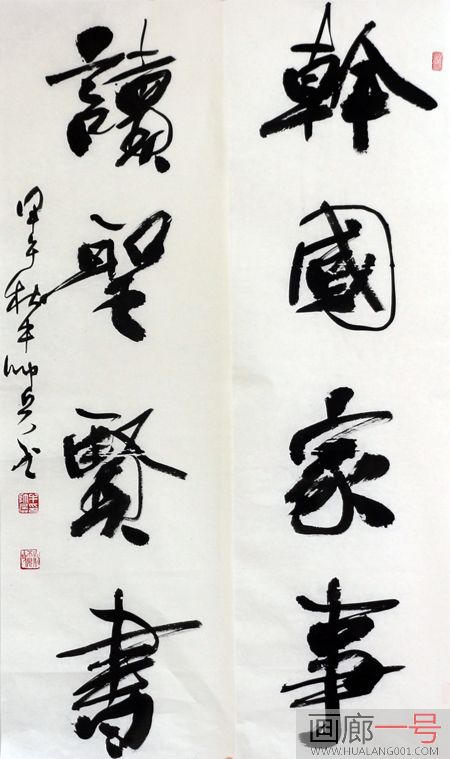 幹國家事
讀聖賢書
甲午秋牛帅兵书
画廊一号
WWW.HUALANG001.COM